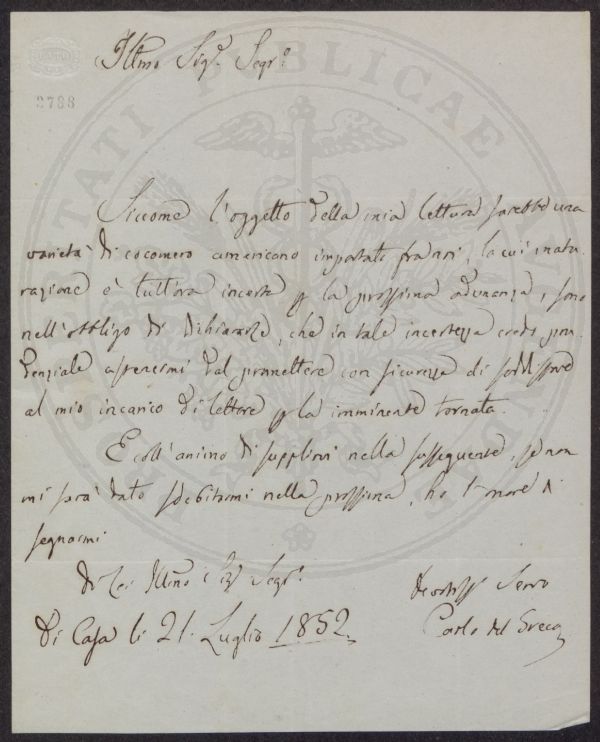 2788
Illmo Sigr. Segro.
Siccome l'oggetto della mia lettura sarebbe una
varietà di cocomero americano importato fra noi, la cui matu-
razione è tutt'ora incerta p la prossima adunanza, sono
nell'obbligo di dichiararle, che in tale incertezza credo pru-
denziale astenermi dal promettere con sicurezza di soddisfare
al mio incarico di lettore p la imminente tornata.
E coll'animo di supplirvi nella susseguente, se non
mi sarà dato sdebitarmi nella prossima, ho l'onore di
segnarmi
di Lei Illmo Sigr Segro.
Devotiss Servo
Di Casa li 21. Luglio 1852
Carlo del Greco